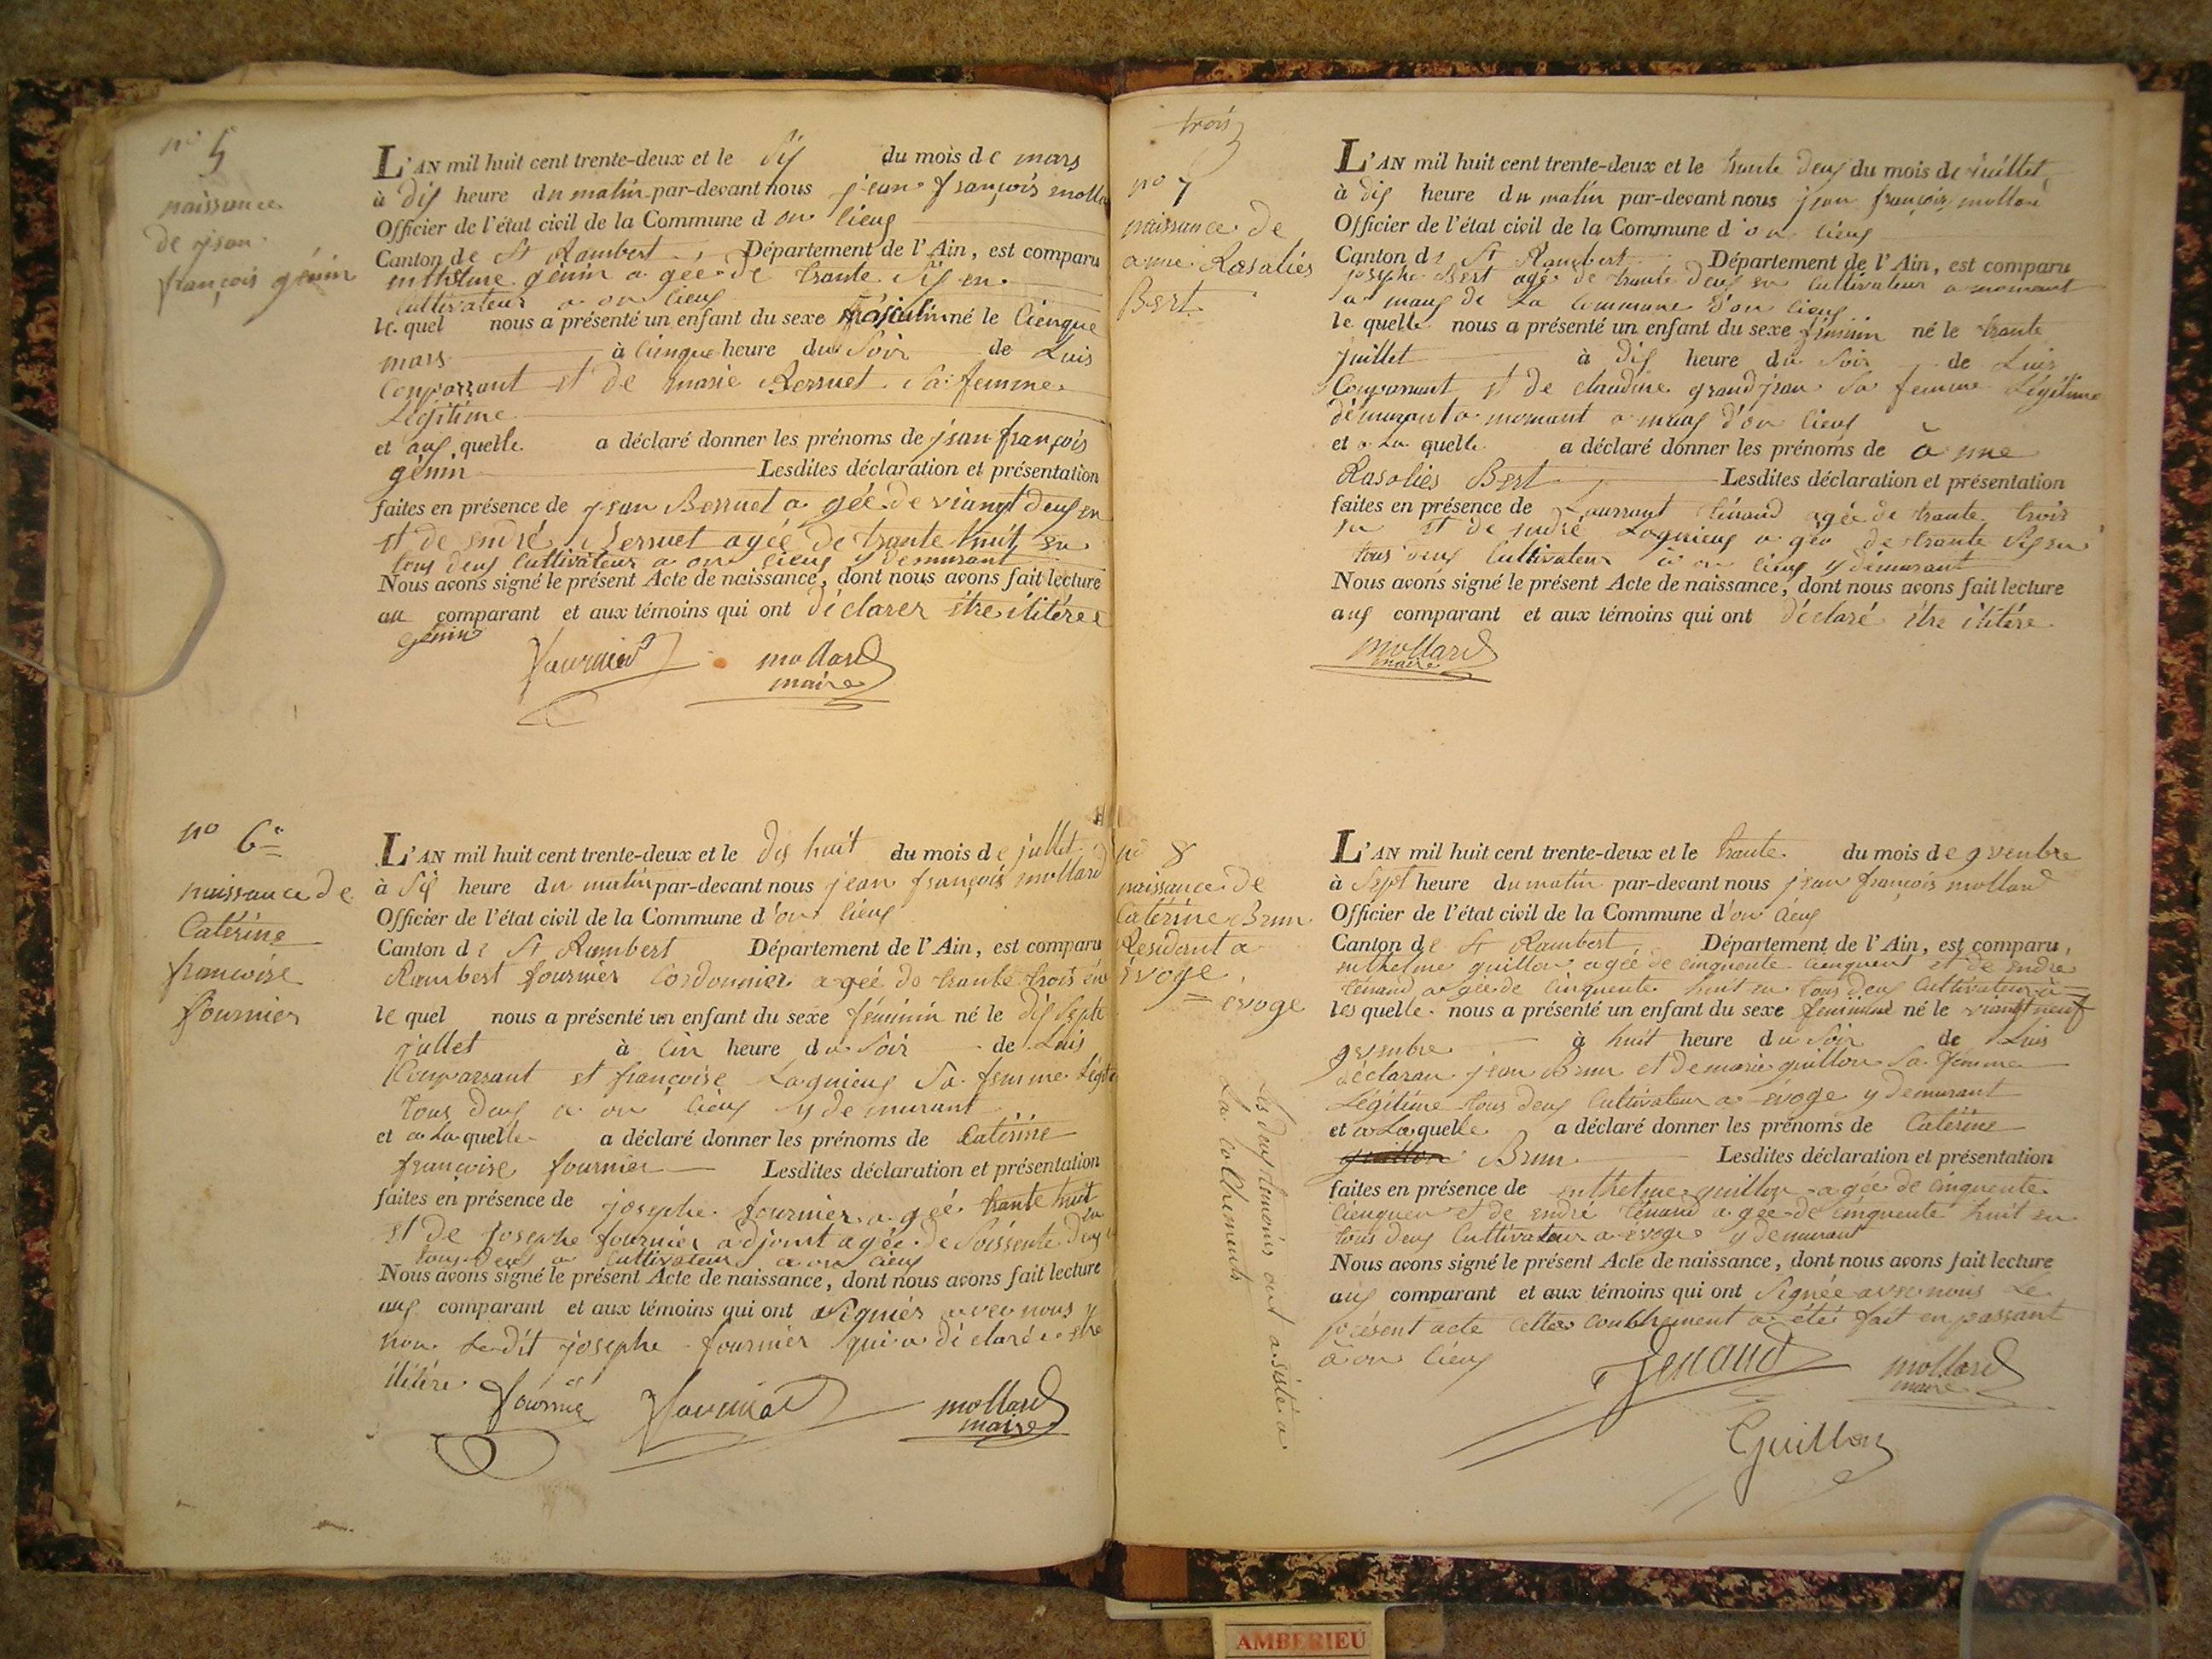 no 5
naissance
de jean
françois génin
L'AN mil huit cent trente-deux et le six du mois de mars
à dix heure du matin par-devant nous jean françois molla
Officier de l'état civil de la Commune d on cieux
Canton de St Rambert Département de l'Ain, est comparu
enthelme génin a geé de trante six en
Cultivateur a on cieux
le quel nous a présenté un enfant du sexe masculin né le Cienque
mars à cienque heure du soir de Luis
Conparrant et de marie Berruet sa femme
Légitime
et aux quelle a déclaré donner les prénoms de jean françois
génin Lesdites déclaration et présentation
faites en présence de jean Berruet a geé de viangt deux en
et de endré Berruet ageé de trante huit en
tous deux Cultivateur a on cieux y demurant
Nous avons signé le présent Acte de naissance, dont nous avons fait lecture
au comparant et aux témoins qui ont déclarer être ilitéree
génin
mollard
maire
no 6
naissance de
Catérine
francoise
fournier
L'AN mil huit cent trente-deux et le dix huit du mois de jullet
à six heure du matin par-devant nous jean françois mollard
Officier de l'état civil de la Commune d'on cieux
Canton de St Rambert Département de l'Ain, est comparu
Rambert fournier Cordonnier ageé de trante trois en
le quel nous a présenté un enfant du sexe féminin né le dix septe
jullet à heure du soir de Luis
Comparrant et françoise Lagnieux sa femme Légite
tous deux a on cieux y demurant
et a La quelle a déclaré donner les prénoms de Catérine
françoise fournier Lesdites déclaration et présentation
faites en présence de josephe fournier a geé trante huit
en
et de josephe fournier adjoint ageé de soissente deux
tous deux a Cultivateur a on cieux
Nous avons signé le présent Acte de naissance, dont nous avons fait lecture
aux comparant et aux témoins qui ont signiér avec nous
non Ledit josephe fournier qui a déclarée etre
ilitére
mollard
maire
trois
no 7
naissance de
anne Rosaliés
Bert
L'AN mil huit cent trente-deux et le trante deux du mois de juillet
à dix heure du matin par-devant nous jean françois mollard
Officier de l'état civil de la Commune d'on cieux
Canton de St Rambert Département de l'Ain, est comparu
josephe Bert agé de trante deux en Cultivateur a momant
a maux de La Commune d'on cieux
le quelle nous a présenté un enfant du sexe féminin né le trante
juillet à dix heure du soir de Luis
Comparrant et de claudine grandjean sa femme Légitime
démurant a momant a maux d'on cieux
et a La quelle a déclaré donner les prénoms de anne
Rosaliés Bert Lesdites déclaration et présentation
faites en présence de Laurrant ténand ageé de trante trois
en et de endré Lagnieux a geo de trante six en
tous deux Cultivateur a on cieux y démurant
Nous avons signé le présent Acte de naissance, dont nous avons fait lecture
aux comparant et aux témoins qui ont déclaré etre ilitére
mollard
maire
no 8
naissance de
Catérine Brun
Residant a
évoge
évoge
Les deux temoins ont asisté a
La couchements
L'AN mil huit cent trente-deux et le trante du mois de 9vembre
à sept heure du matin par-devant nous jean françois mollard
Officier de l'état civil de la Commune d'on cieux
Canton de St Rambert Département de l'Ain, est comparu,
enthelme guillon ageé de cinquente et de endré
ténand a geé de cinquente huit en tous deux Cultivateur à
les quelle nous a présenté un enfant du sexe feminine né le viangt neuf
9vembre à huit heure du soir de Luis
déclaran jean Brun et de marie guillon sa femme
Légitime tous deux Cultivateur a évoge y demurant
et a La quelle a déclaré donner les prénoms de Catérine
guillon Brun Lesdites déclaration et présentation
faites en présence de enthelme guillon ageé de cinquente
et de endré ténand a geé de cinquente huit en
tous deux Cultivateur a evoge y demurant
Nous avons signé le présent Acte de naissance, dont nous avons fait lecture
aux comparant et aux témoins qui ont signée avec nous Le
présent acte cette couchement a été fait en passant
à on cieux
Tenand mollard
maire
Guillon
AMBERIEU